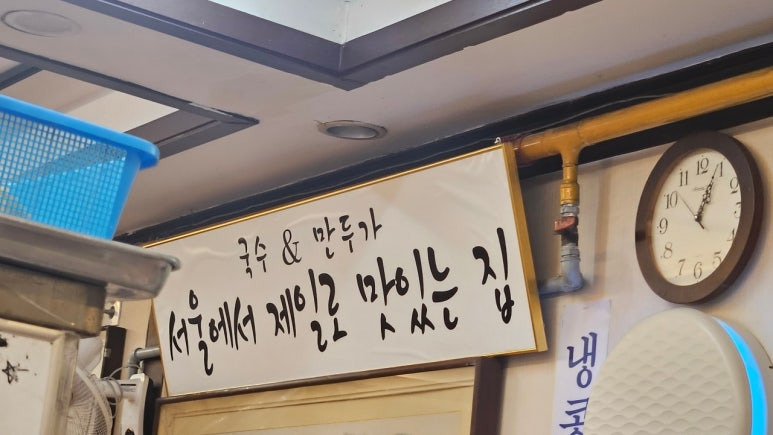 국수 & 만두가
서울에서 제일로 맛있는 집
냉
12
1
2
3
4
5
6
7
8
9
10
11